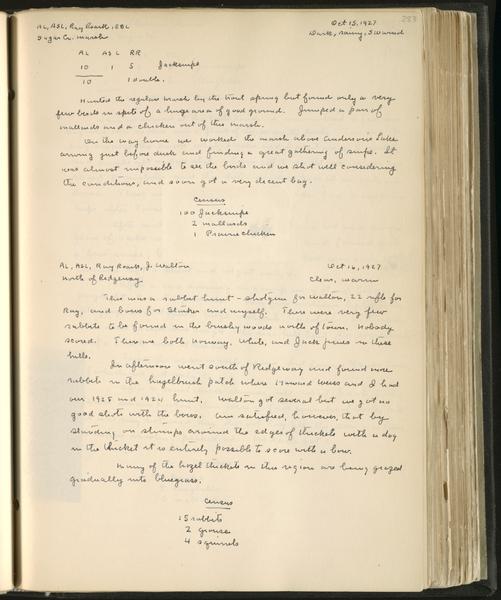 283
AL, ASL, Ray Roark, EBL Oct 15, 1927
Sugar Cr. Marsh Dark, rainy, S wind
AL ASL RR
10 1 5 Jacksnipe
10 1 double.
Hunted the regular marsh by the trout spring but found only a very
few birds in spite of a huge area of good ground. Jumped a pair of
mallards and a chicken out of this marsh.
On the way home we worked the marsh above Anderson's Lake
arriving just before dusk and finding a great gathering of snipe. It
was almost impossible to see the birds and we shot well considering
the conditions, and soon got a very decent bag.
Census
100 Jacksnipe
2 mallards
1 Prairie Chicken
AL, ASL, Ray Roark, J. Walton Oct 16, 1927
North of Ridgeway Clear, warm
This was a rabbit hunt - shotgun for Walton, 22 rifle for
Ray, and bows for Starker and myself. There were very few
rabbits to be found in the brushy woods north of town. Nobody
scored. There are both Norway, White, and Jack pines in these
hills.
In afternoon went south of Ridgeway and found more
rabbits in the hazelbrush patch where Howard Weiss and I had
our 1925 and 1924 hunt. Walton got several but we got no
good shots with the bows. Am satisfied, however, that by
standing on stumps around the edges of thickets with a dog
in the thicket it is entirely possible to score with a bow.
Many of the hazel thickets in this region are being grazed
gradually into bluegrass.
Census
15 rabbits
2 grouse
4 squirrels